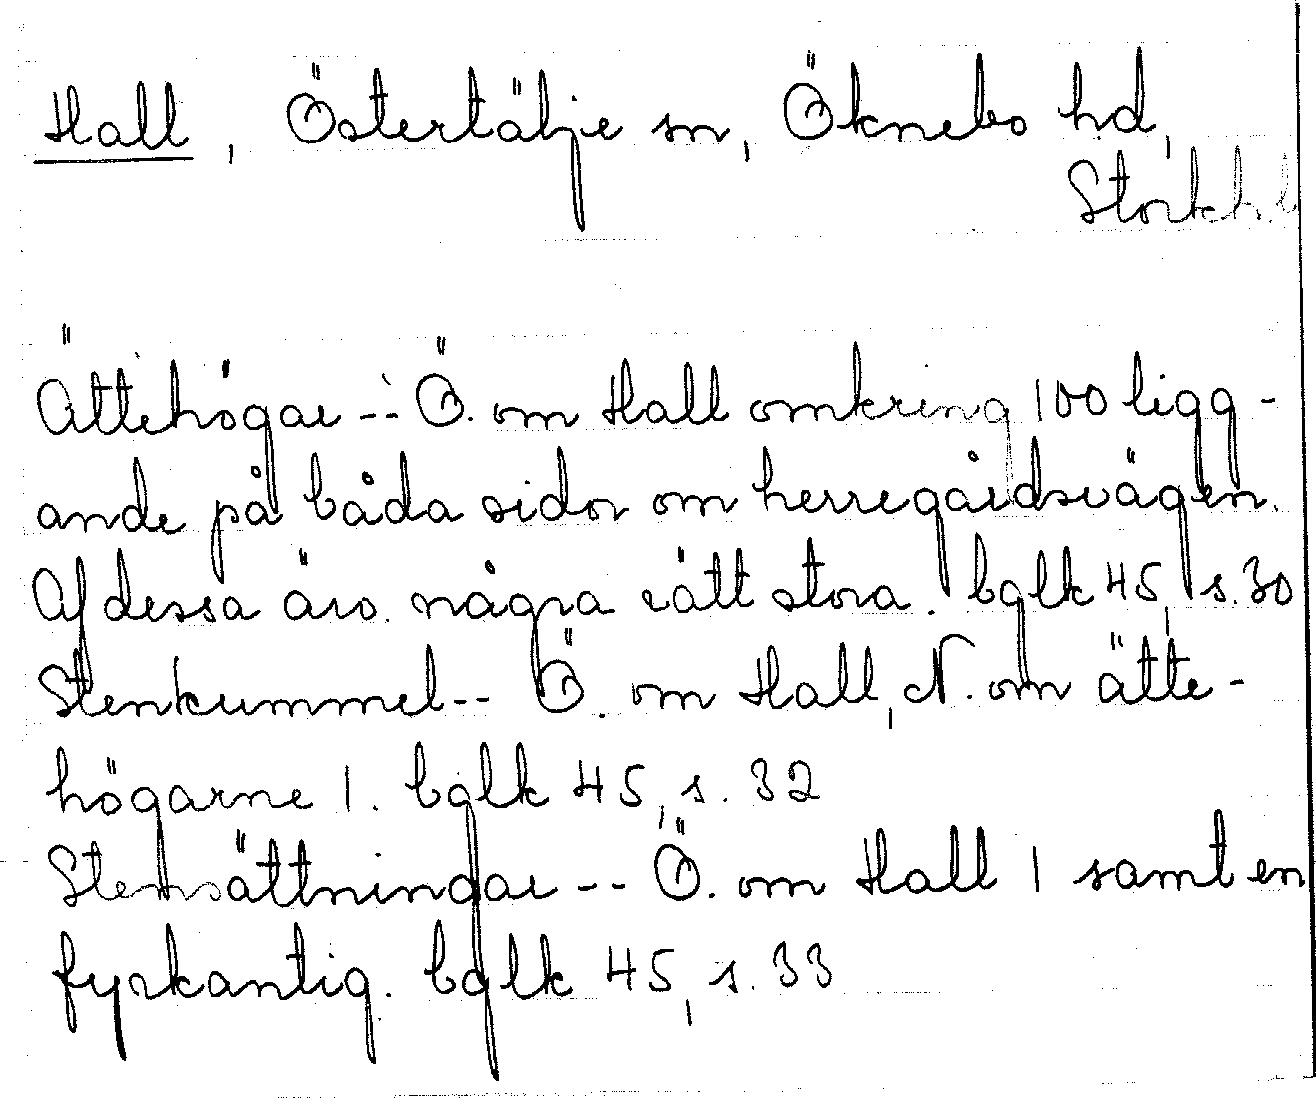 Hall, Östertälje sn, Öknebo hd,
Stockh. l
Ättehögar -- Ö. om Hall omkring 100 ligg-
ande på båda sidor om herregårdsvägen.
Af dessa äro några rätt stora. bglk 45, s. 30
Stenkummel -- Ö. om Hall, N. om ätte-
högarne 1. bglk 45, s. 32
Stensättningar -- Ö. om Hall 1 samt en
fyrkantig. bglk 45, s. 33